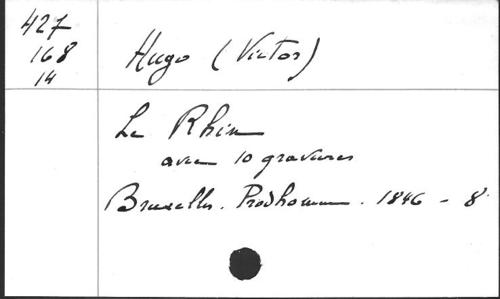 427
168
14
Hugo (Victor)
Le Rhin
avec 10 gravures
Bruxelles. Prodhomme. 1846 - 8